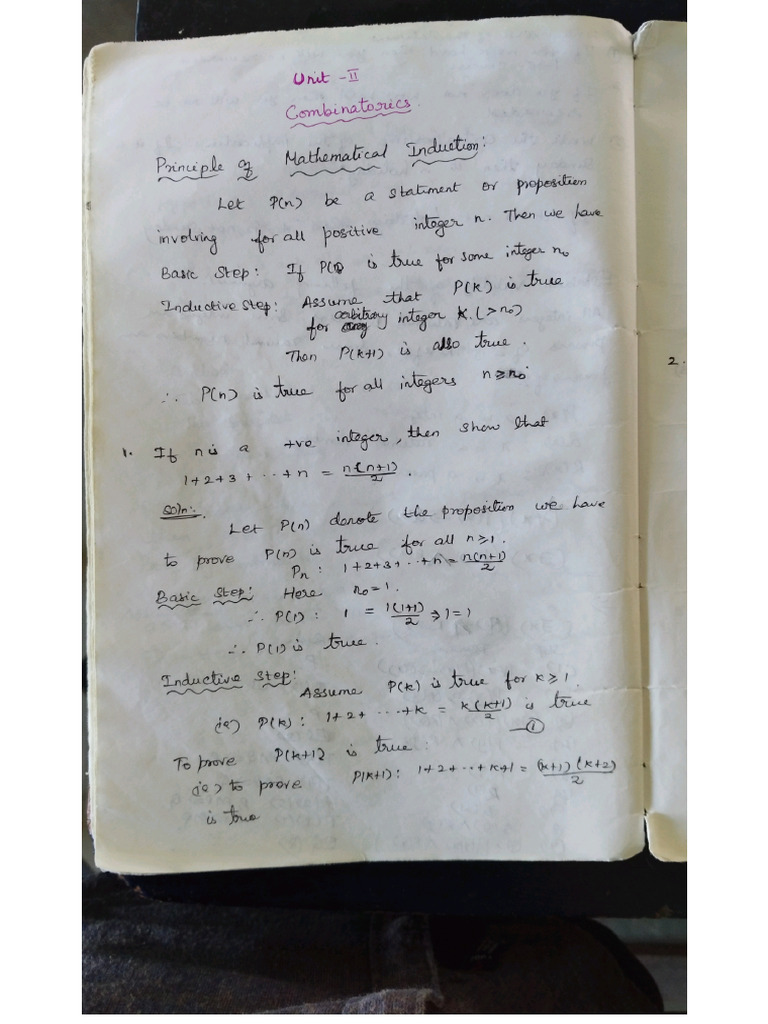 Unit - II
Combinatorics.
Principle of Mathematical Induction:
Let P(n) be a statment or proposition
involving for all positive integer n. Then we have
Basic Step: If P( is true for some integer n₀
Inductive Step: Assume that P(k) is true
for arbitrary integer k. (> n₀)
Then P(k+1) is also true.
∴ P(n) is true for all integers n ≥ n₀.
1. If n is a +ve integer, then show that
1+2+3+ ... +n = n(n+1)/2 .
Soln:.
Let P(n) denote the proposition we have
to prove P(n) is true for all n ≥ 1.
Pn : 1+2+3+ ... +n = n(n+1)/2
Basic Step: Here n₀ = 1.
∴ P(1) : 1 = 1(1+1)/2 ⇒ 1 = 1
∴ P(1) is true.
Inductive Step:
Assume P(k) is true for k ≥ 1.
(ie) P(k) : 1+2+ ... +k = k(k+1)/2 is true
—①
To prove P(k+1) is true.
(ie) to prove P(k+1) : 1+2+ ... +k+1 = (k+1)(k+2)/2
is true
2.